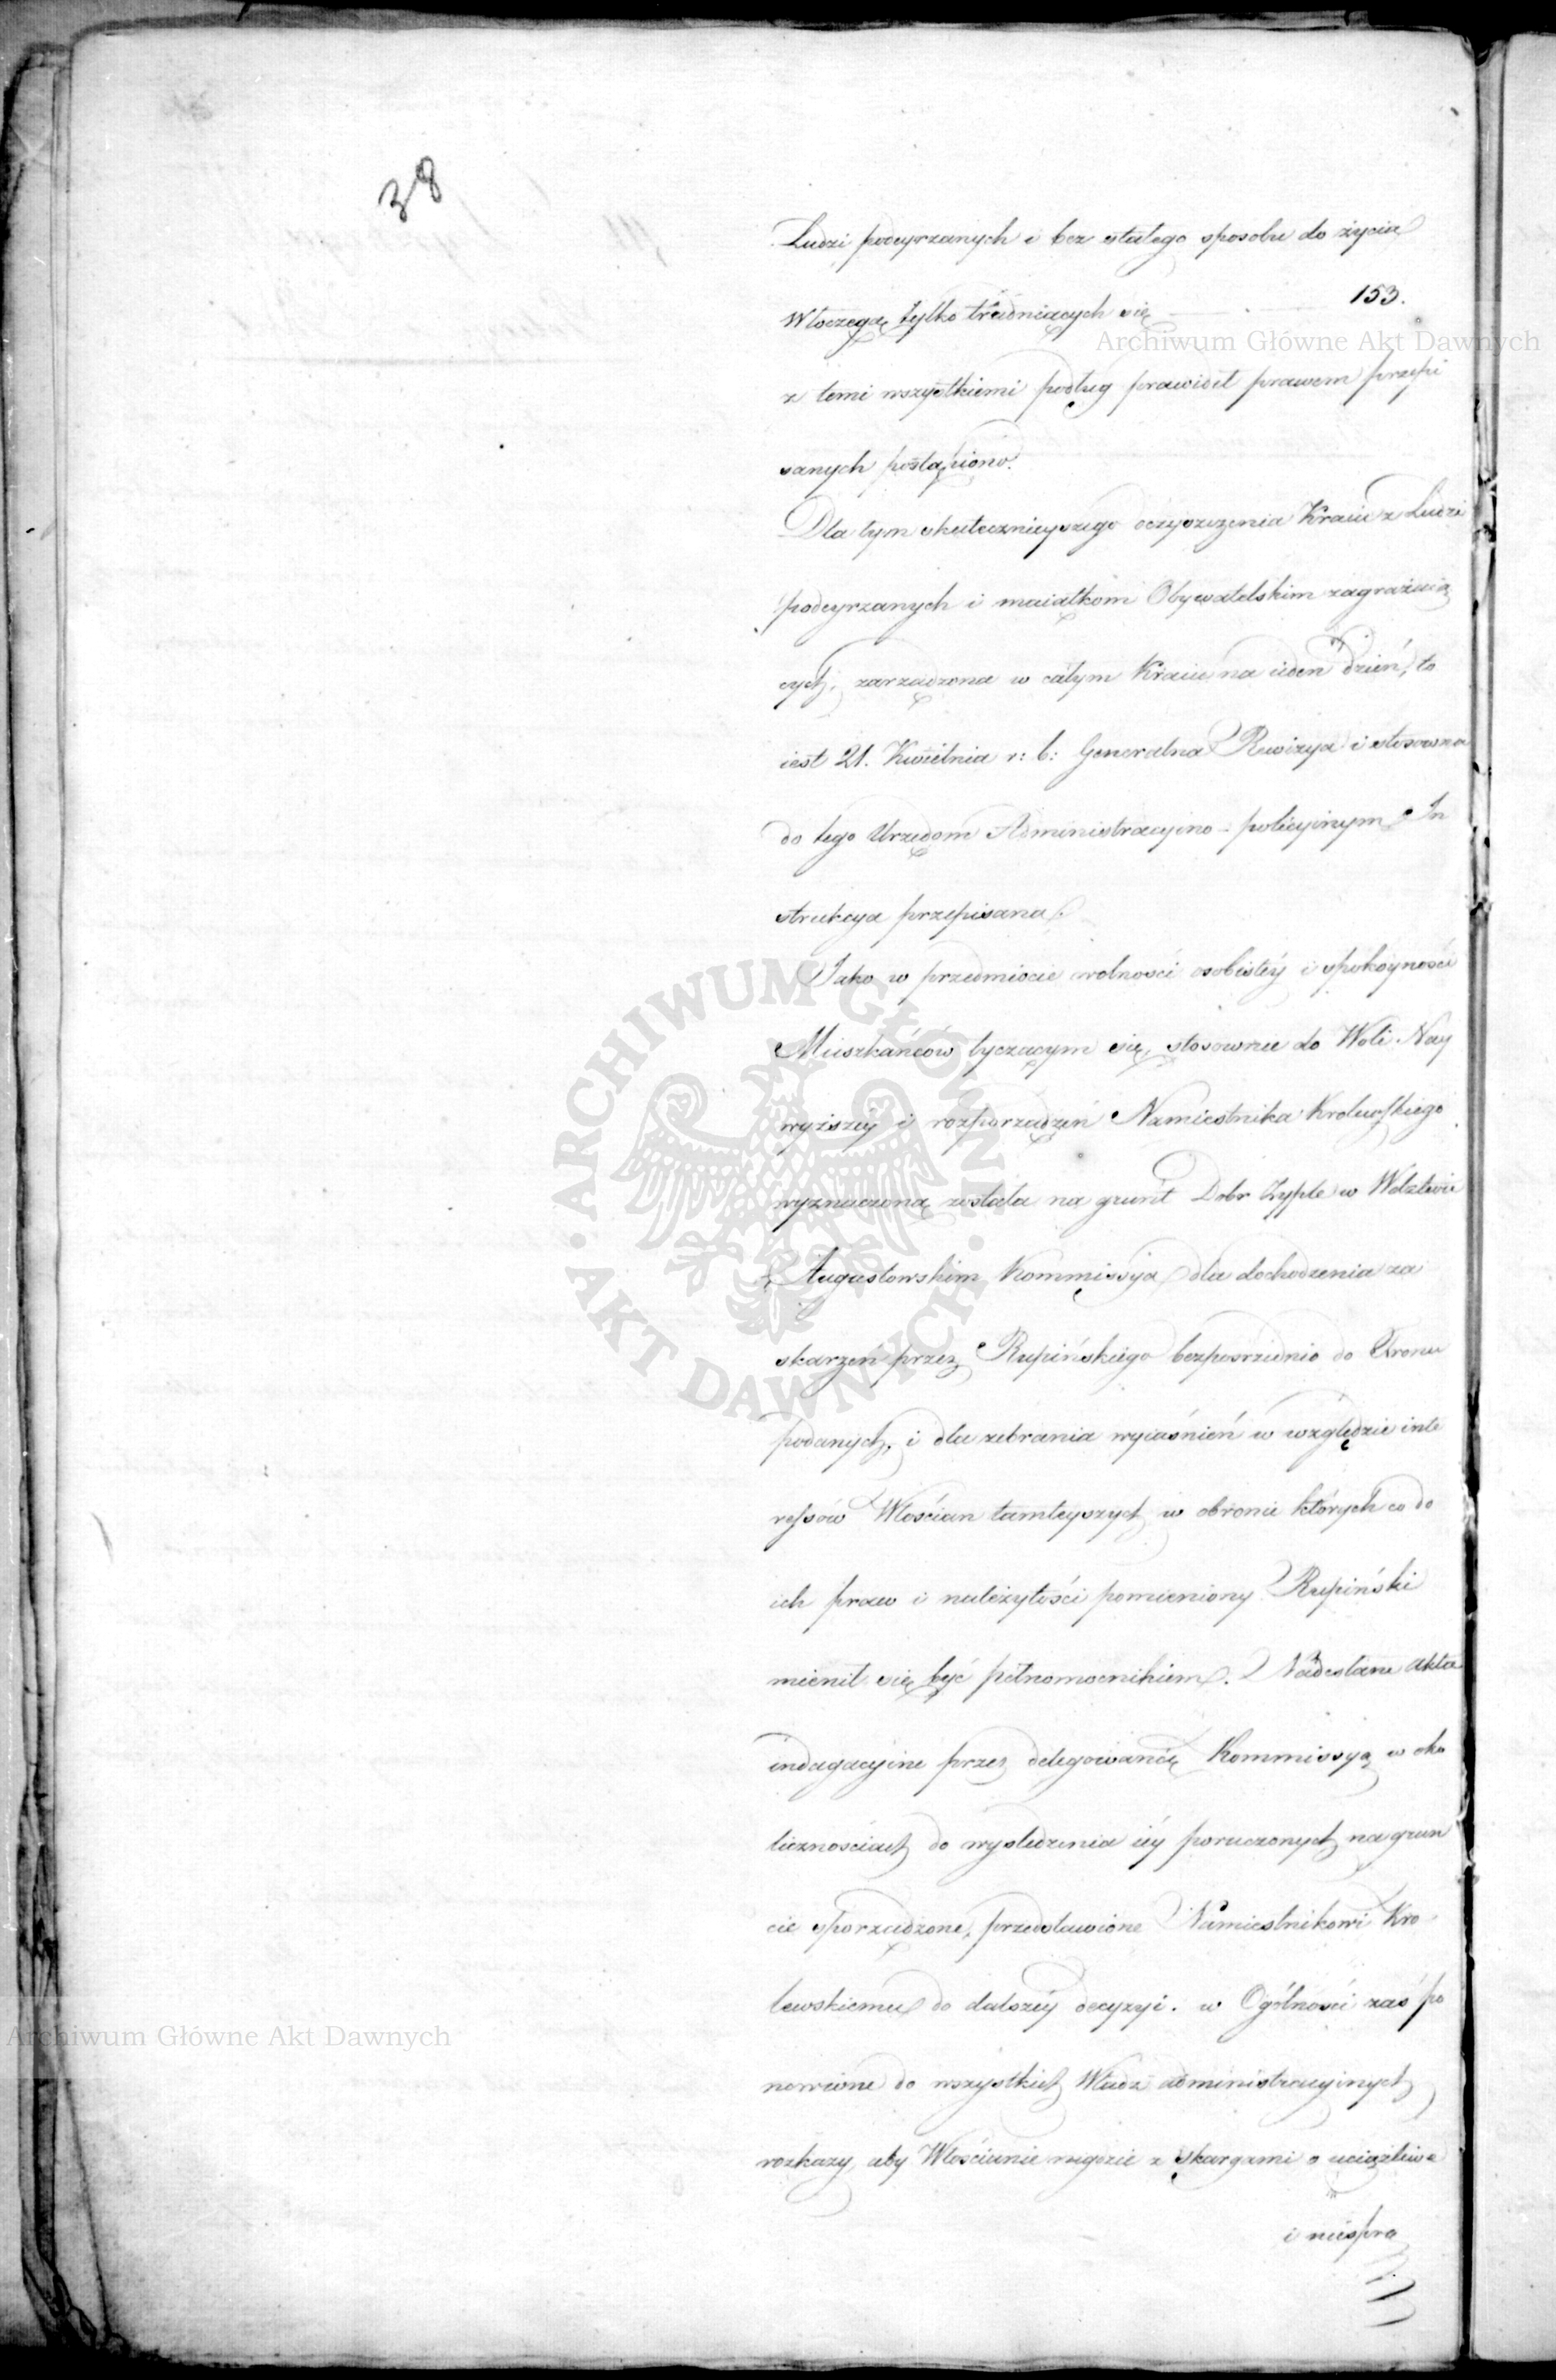 38
Ludzi podeyrzanych i bez stałego sposobu do życia
Włoczęgą tylko trudniących się 153.
Archiwum Główne Akt Dawnych
z temi wszystkiemi podług prawideł prawem przepi
sanych postąpiono.
Dla tym skutecznieyszego oczyszczenia Kraiu z Ludzi
podeyrzanych i maiątkom Obywatelskim zagrażaią
cych, zarządzona w całym Kraiu na ieden dzień, to
iest 21. Kwietnia r: b: Generalna Rewizya i stosowna
do tego Urzędom Administracyino-policyinym In
strukcya przepisana.
Jako w przedmiocie wolności osobistéy i spokoyności
Mieszkańców tyczącym się, stosownie do Woli Nay
wyższéy i rozporządzeń Namiestnika Krolewskiego
wyznaczoną została na grunt Dobr Zyple w Wdztwie
Augustowskim Kommissya dla dochodzenia za
skarżeń przez Rupińskiego bezpośrzednio do Tronu
podanych, i dla zebrania wyiaśnień w względzie inte
ressów Włościan tamteyszych w obronie których co do
ich praw i należytości pomieniony Rupiński
mienił się być pełnomocnikiem. Nadesłane Akta
indagacyine przez delegowaną Kommissyą w oko
licznościach do wyśledzenia iéy poruczonych na grun
cie sporządzone, przedstawione Namiestnikowi Kro-
lewskiemu do dalszéy decyzyi. w Ogólności zaś po
nowione do wszystkich Władz administracyinych
rozkazy, aby Włościanie nigdzie z skargami o uciążliwe
i niespra
ARCHIWUM GŁÓWNE AKT DAWNYCH
Archiwum Główne Akt Dawnych